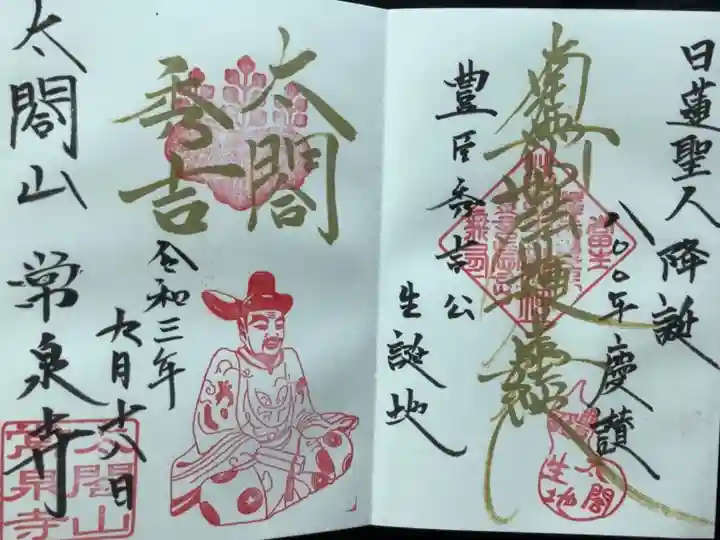 日蓮聖人降誕
八〇〇年慶讃
南無妙法蓮華経
豊臣秀吉公
生誕地
太閤
生地
太閤
秀吉
令和三年
九月十六日
太閤山 常泉寺
太閤山
常泉寺